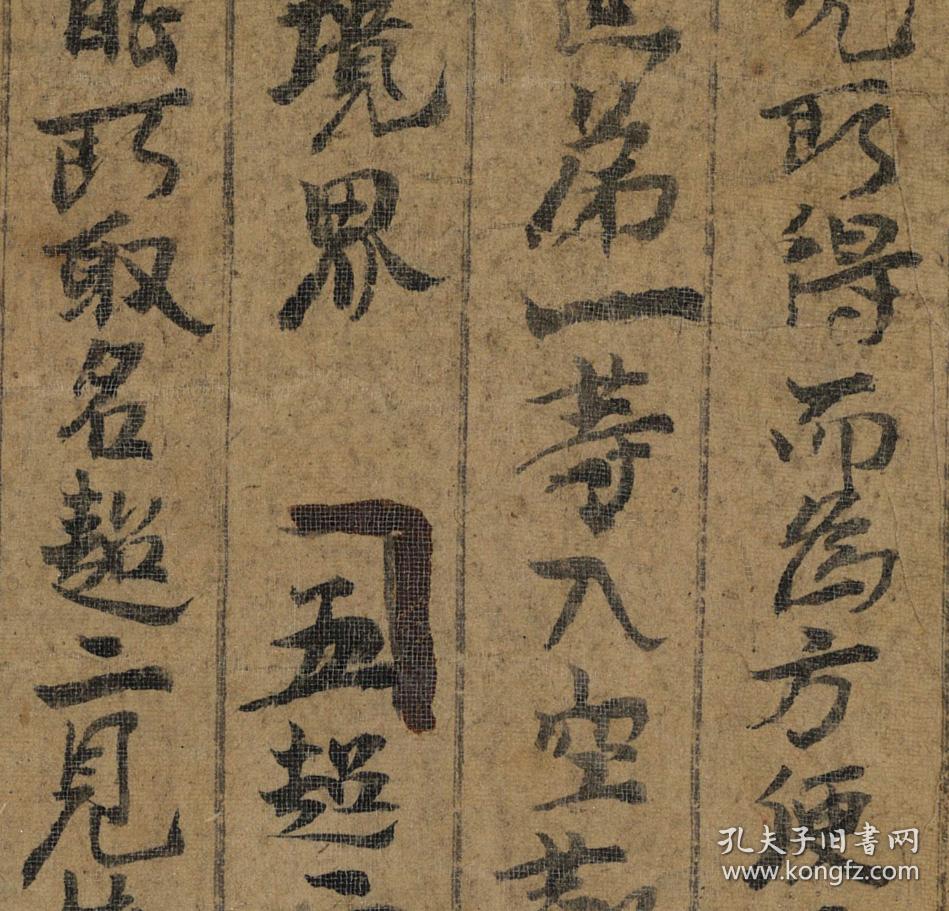 所得而为方便
第一等入空
境界 五超二
眼所取名超二見
孔夫子旧书网
www.kongfz.com